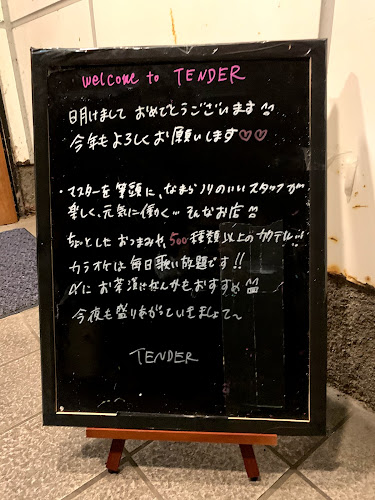 welcome to TENDER
日明けまして おめでとうございます
今年もよろしくお願いします♡♡
・マスターを筆頭に、なまらノリのいいスタッフが
楽しく、元気に働く… そんなお店
ちょっとした おつまみや、500種類以上のカクテル…
カラオケは毎日歌い放題です!!
〆にお茶漬けなんかもおすすめ
今夜も盛りあがっていきましょう〜
TENDER